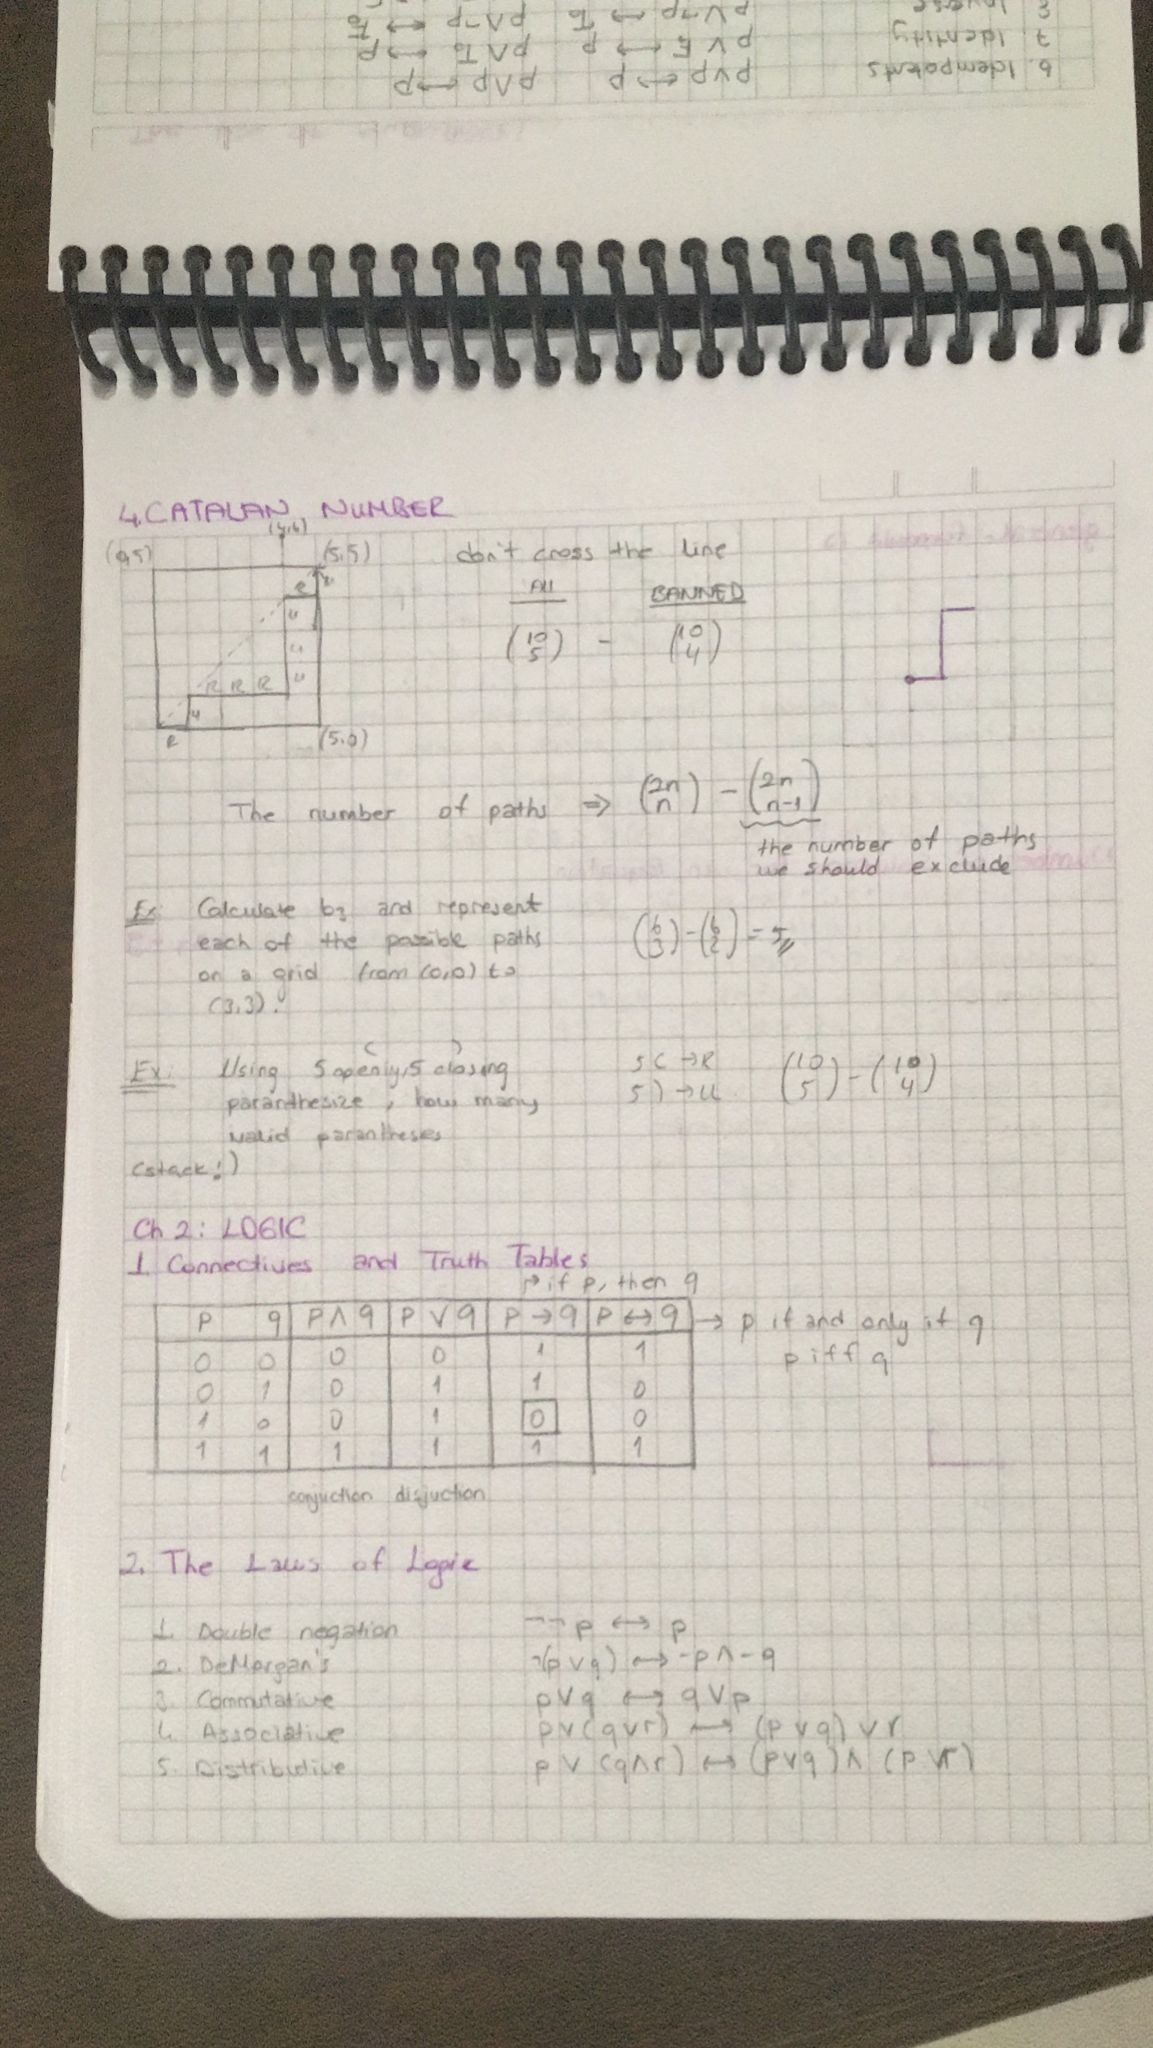 6. Idempotents p∨p ↔ p p∧p ↔ p
7. Identity p∨F ↔ p p∧T₀ ↔ p
8 Inverse p∨¬p ↔ T₀ p∧¬p ↔ F₀
4. CATALAN NUMBER
(4,6)
(0,5) (5,5) don't cross the line
All BANNED
R
U
(10 5) - (10 4)
U
R R R U
U
R (5,0)
The number of paths ⇒ (2n n) - (2n n-1)
the number of paths
we should exclude
Ex: Calculate b3 and represent
each of the possible paths (6 3) - (6 2) = 5
on a grid from (0,0) to
(3,3).
( )
Ex: Using 5 openiy, 5 closing 5 ( → R (10 5) - (10 4)
paranthesize, how many 5 ) → U
valid parantheses
(stack!)
Ch 2: LOGIC
1. Connectives and Truth Tables
↱ if p, then q
p q p∧q p∨q p→q p↔q → p if and only if q
0 0 0 0 1 1 p iff q
0 1 0 1 1 0
1 0 0 1 0 0
1 1 1 1 1 1
conjuction disjuction
2. The Laws of Logic
1. Double negation ¬¬p ↔ p
2. DeMorgan's ¬(p∨q) ↔ ¬p∧¬q
3. Commutative p∨q ↔ q∨p
4. Associative p∨(q∨r) ↔ (p∨q)∨r
5. Distributive p∨(q∧r) ↔ (p∨q)∧(p∨r)